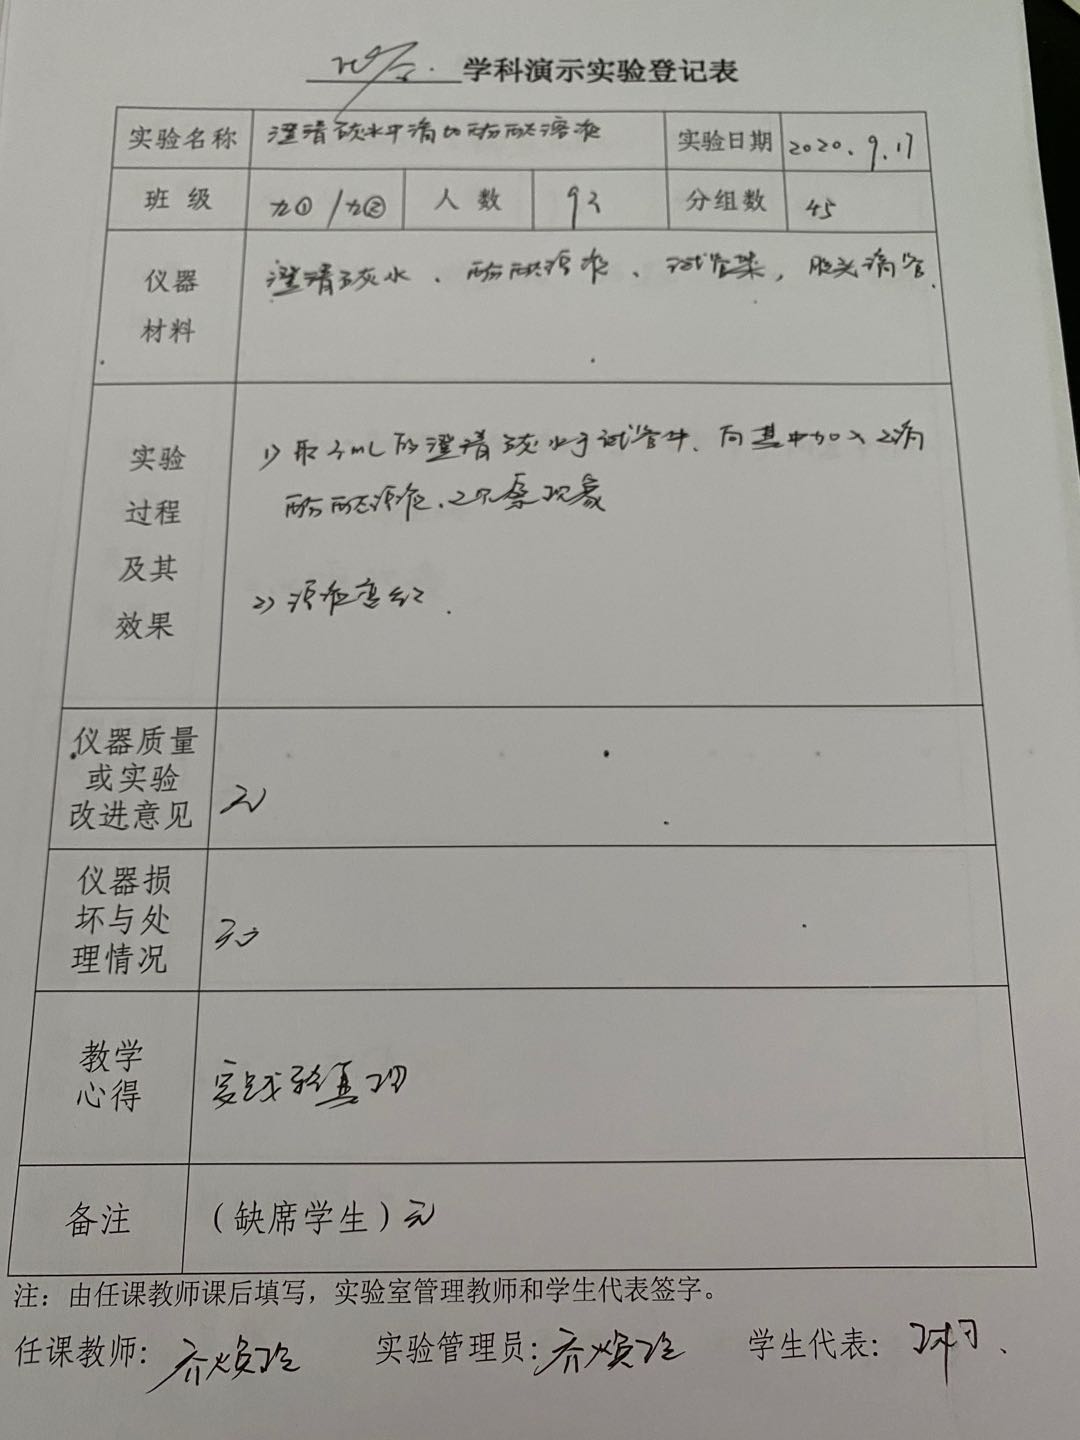 化学 学科演示实验登记表
实验名称 澄清石灰水中滴加酚酞溶液 实验日期 2020.9.17
班级 九① / 九② 人数 92 分组数 45
仪器材料 澄清石灰水、酚酞溶液、试管架,胶头滴管.
实验过程及其效果
1) 取3mL的澄清石灰水于试管中、向其中加入2滴
酚酞溶液、观察现象
2) 溶液变红.
仪器质量或实验改进意见 无
仪器损坏与处理情况 无
教学心得 实践验真理
备注 (缺席学生)无
注:由任课教师课后填写,实验室管理教师和学生代表签字。
任课教师: 实验管理员: 学生代表: